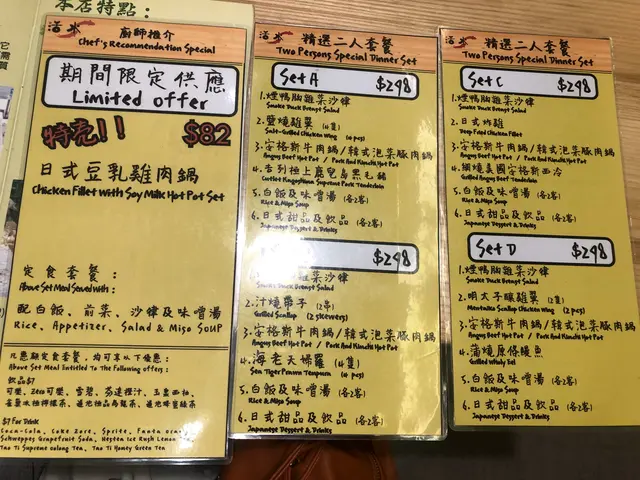 本店特點：
廚師推介
Chef's Recommendation Special
期間限定供應
Limited offer
特売!! $82
日式豆乳雞肉鍋
Chicken Fillet With Soy Milk Hot Pot Set
定食套餐：
Above Set Meal Served with:
配白飯、前菜、沙律及味噌湯
Rice, Appetizer, Salad & Miso Soup
凡惠顧定食套餐，均可享以下優惠：
Above Set Meal Entitled To The Following offers:
飲品$7
可樂、Zero可樂、雪碧、芬達橙汁、玉泉西柚、
$7 For Drink
Coca-Cola, Coke Zero, Sprite, Fanta
Schweppes Grapefruit Soda, Nestea Ice Rush Lemon
Tao Ti Supreme Oolong Tea, Tao Ti Honey Green Tea
精選二人套餐
Two Persons Special Dinner Set
Set A $298
1.煙鴨胸雜菜沙律
Smoke Duck Breast Salad
2.鹽燒雞翼 (4隻)
Salt-Grilled Chicken Wing (4 pcs)
3.安格斯牛肉鍋/韓式泡菜豚肉鍋
Angus Beef Hot Pot / Pork And Kimchi Hot Pot
4.吉列極上鹿兒島黑毛豬
Cutlet Kagoshima Supreme Pork Tenderloin
5.白飯及味噌湯 (各2客)
Rice & Miso Soup
6.日式甜品及飲品 (各2客)
Japanese Dessert & Drinks
$298
菜沙律
Smoke Duck Breast Salad
2.汁燒帶子 (2串)
Grilled Scallop (2 skewers)
3.安格斯牛肉鍋/韓式泡菜豚肉鍋
Angus Beef Hot Pot / Pork And Kimchi Hot Pot
4.海老天婦羅 (4隻)
Sea Tiger Prawn Tempura (4 pcs)
5.白飯及味噌湯 (各2客)
Rice & Miso Soup
6.日式甜品及飲品 (各2客)
Japanese Dessert & Drinks
精選二人套餐
Two Persons Special Dinner Set
Set C $298
1.煙鴨胸雜菜沙律
Smoke Duck Breast Salad
2.日式炸雞
Deep Fried Chicken Fillet
3.安格斯牛肉鍋/韓式泡菜豚肉鍋
Angus Beef Hot Pot / Pork And Kimchi Hot Pot
4.網燒美國安格斯西冷
Grilled Angus Beef Tenderloin
5.白飯及味噌湯 (各2客)
Rice & Miso Soup
6.日式甜品及飲品 (各2客)
Japanese Dessert & Drinks
Set D $298
1.煙鴨胸雜菜沙律
Smoke Duck Breast Salad
2.明太子釀雞翼 (2隻)
Mentaiko Scallop Chicken Wing (2 pcs)
3.安格斯牛肉鍋/韓式泡菜豚肉鍋
Angus Beef Hot Pot / Pork And Kimchi Hot Pot
4.蒲燒原條鰻魚
Grilled Whole Eel
5.白飯及味噌湯 (各2客)
Rice & Miso Soup
6.日式甜品及飲品 (各2客)
Japanese Dessert & Drinks